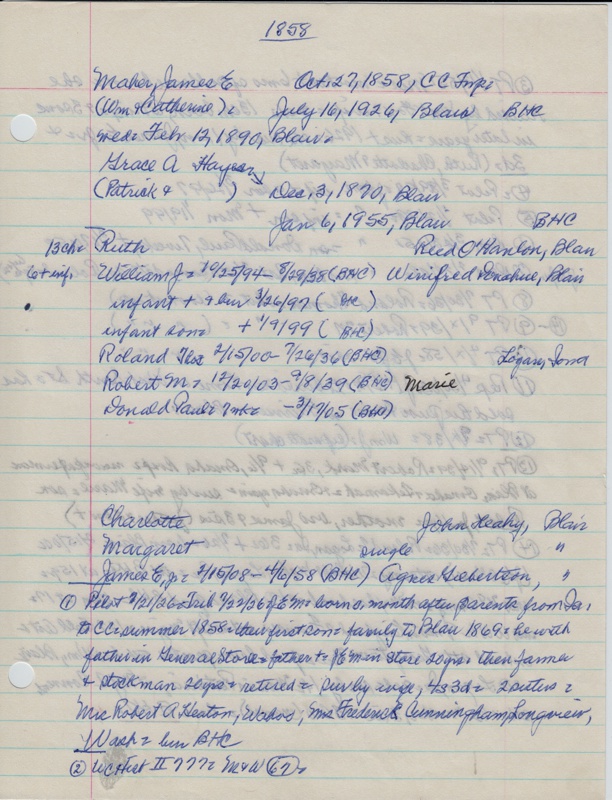 1858
Maher, James E Oct. 27, 1858, CC
(Wm & Catherine) = July 16, 1926, Blair BHC
med = Feb. 12, 1890, Blair =
Grace A Hayes
(Patrick & ) Dec, 3, 1870, Blair
Jan 6, 1955, Blair BHC
13 ch = Ruth Reed O'Hanlon, Blair
6 + inf. William J = 10/25/94 - 8/29/38 (BHC) Winifred Donahue, Blair
infant + 9 3/26/97 (BHC)
infant son = + 1/9/99 (BHC)
Roland 2/15/00 - 7/26/36 (BHC) Logan, Iowa
Robert M = 12/20/03 - 9/8/39 (BHC) Marie
Donald Paul = - 3/17/05 (BHC)
Charlotte John Healy, Blair
Margaret single "
James E, Jr = 2/15/08 - 4/6/58 (BHC) Agnes Gilbertson, "
① Pilot 7/21/26 = Trib 7/22/26 JEM = born a month after parents from Ia.
to CC = summer 1858 = their first son = family to Blair 1869 = he with
father in General Store = father + = JEM in store 20 yrs = then farmer
& stockman 20 yrs = retired = surv by wife, 4s 3d = 2 sisters =
Mrs Robert A Heaton, Wahoo, Mrs Frederick Cunningham Longview,
Wash = bur BHC
② WC Hist II 777 = M & W 62 =